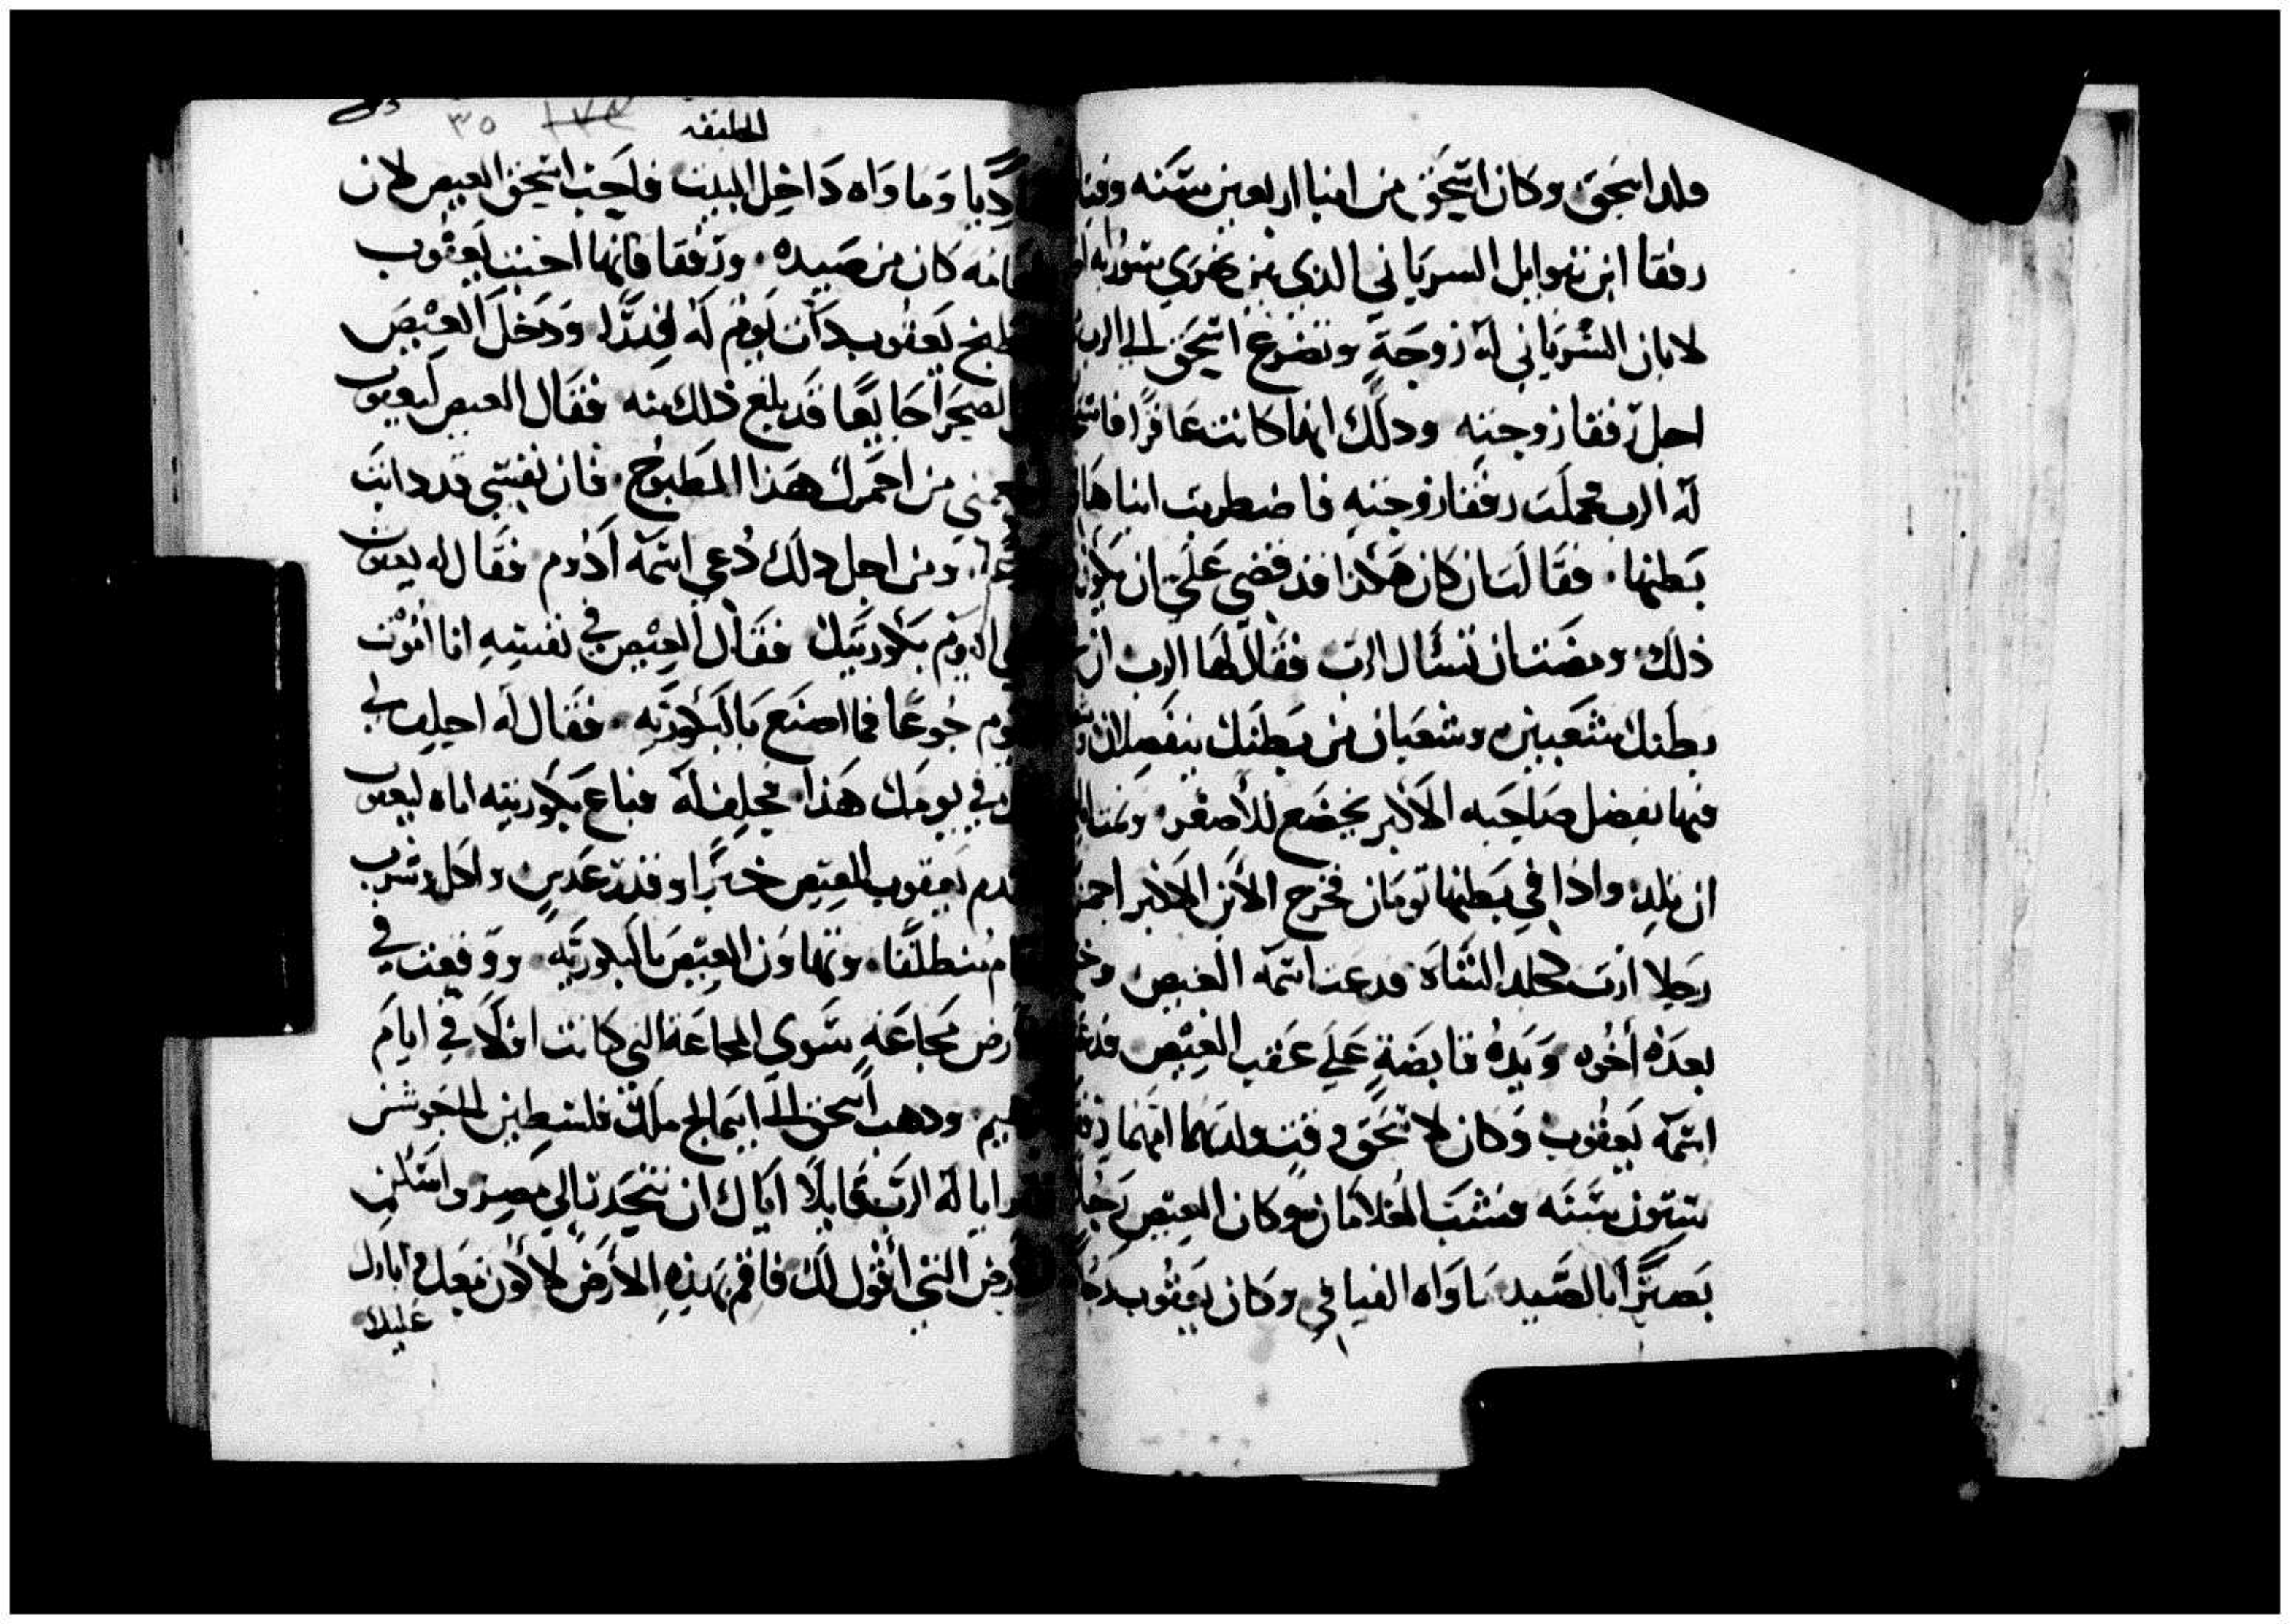 ولد اسحق وكان اسحق من ابنا اربعين سنه وقتا
رفقا ابن بتوايل السرياني الذي من نحري سوريه
لابان السرياني له زوجة وتضرع اسحق الى الرب
اجل رفقا زوجته وذلك انها كانت عاقرا
له الرب فحملت رفقا زوجته فاضطربت ابناها
بطنها فقالت ان كان هكذا قد قضي علي ان يكون
ذلك ومضت ان تسال الرب فقال لها الرب ان
بطنك شعبين وشعبان من بطنك ينفصلان
منها يفضل صاحبه الاكبر يخضع للاصغر
ان تلد واذا في بطنها تومان فخرج الابن الاكبر احمر
رجلا ازب كجلد الشاه فدعت اسمه العيص
بعده اخوه ويده قابضة على عقب العيص
اسمه يعقوب وكان لاسحق وقت ولدتهما امهما رفقا
ستون سنه فشب الغلامان وكان العيص رجلا
بصيرا بالصيد ماواه الفيافي وكان يعقوب رجلا
الخليقه
٣٥
وماواه داخل البيت فاحب اسحق العيص لان
كان من صيده ورفقا فانها احبت يعقوب
يعقوب ذات يوم له قدرا ودخل العيص
الصحرا جايعا قد بلغ ذلك منه فقال العيص ليعقوب
من احمرك هذا المطبوخ فان نفسي قد دابت
ومن اجل ذلك دعي اسمه ادوم فقال له يعقوب
اليوم بكوريتك فقال العيص في نفسه انا اموت
جوعا فما اصنع بالبكوريه فقال له احلف لي
في يومك هذا فحلف له فباع بكوريته اياه ليعقوب
يعقوب للعيص خبزا وقدر عدس واكل وشرب
منطلقا وتهاون العيص بالبكوريه ووقعت في
مجاعه سوي المجاعه التي كانت اولا في ايام
وذهب اسحق الى ابيمالخ ملك فلسطين
له الرب قايلا اياك ان تنحدر الي مصر واسكن
التي اقول لك فاقم بهذه الارض لاكون معك وابارك
عليك